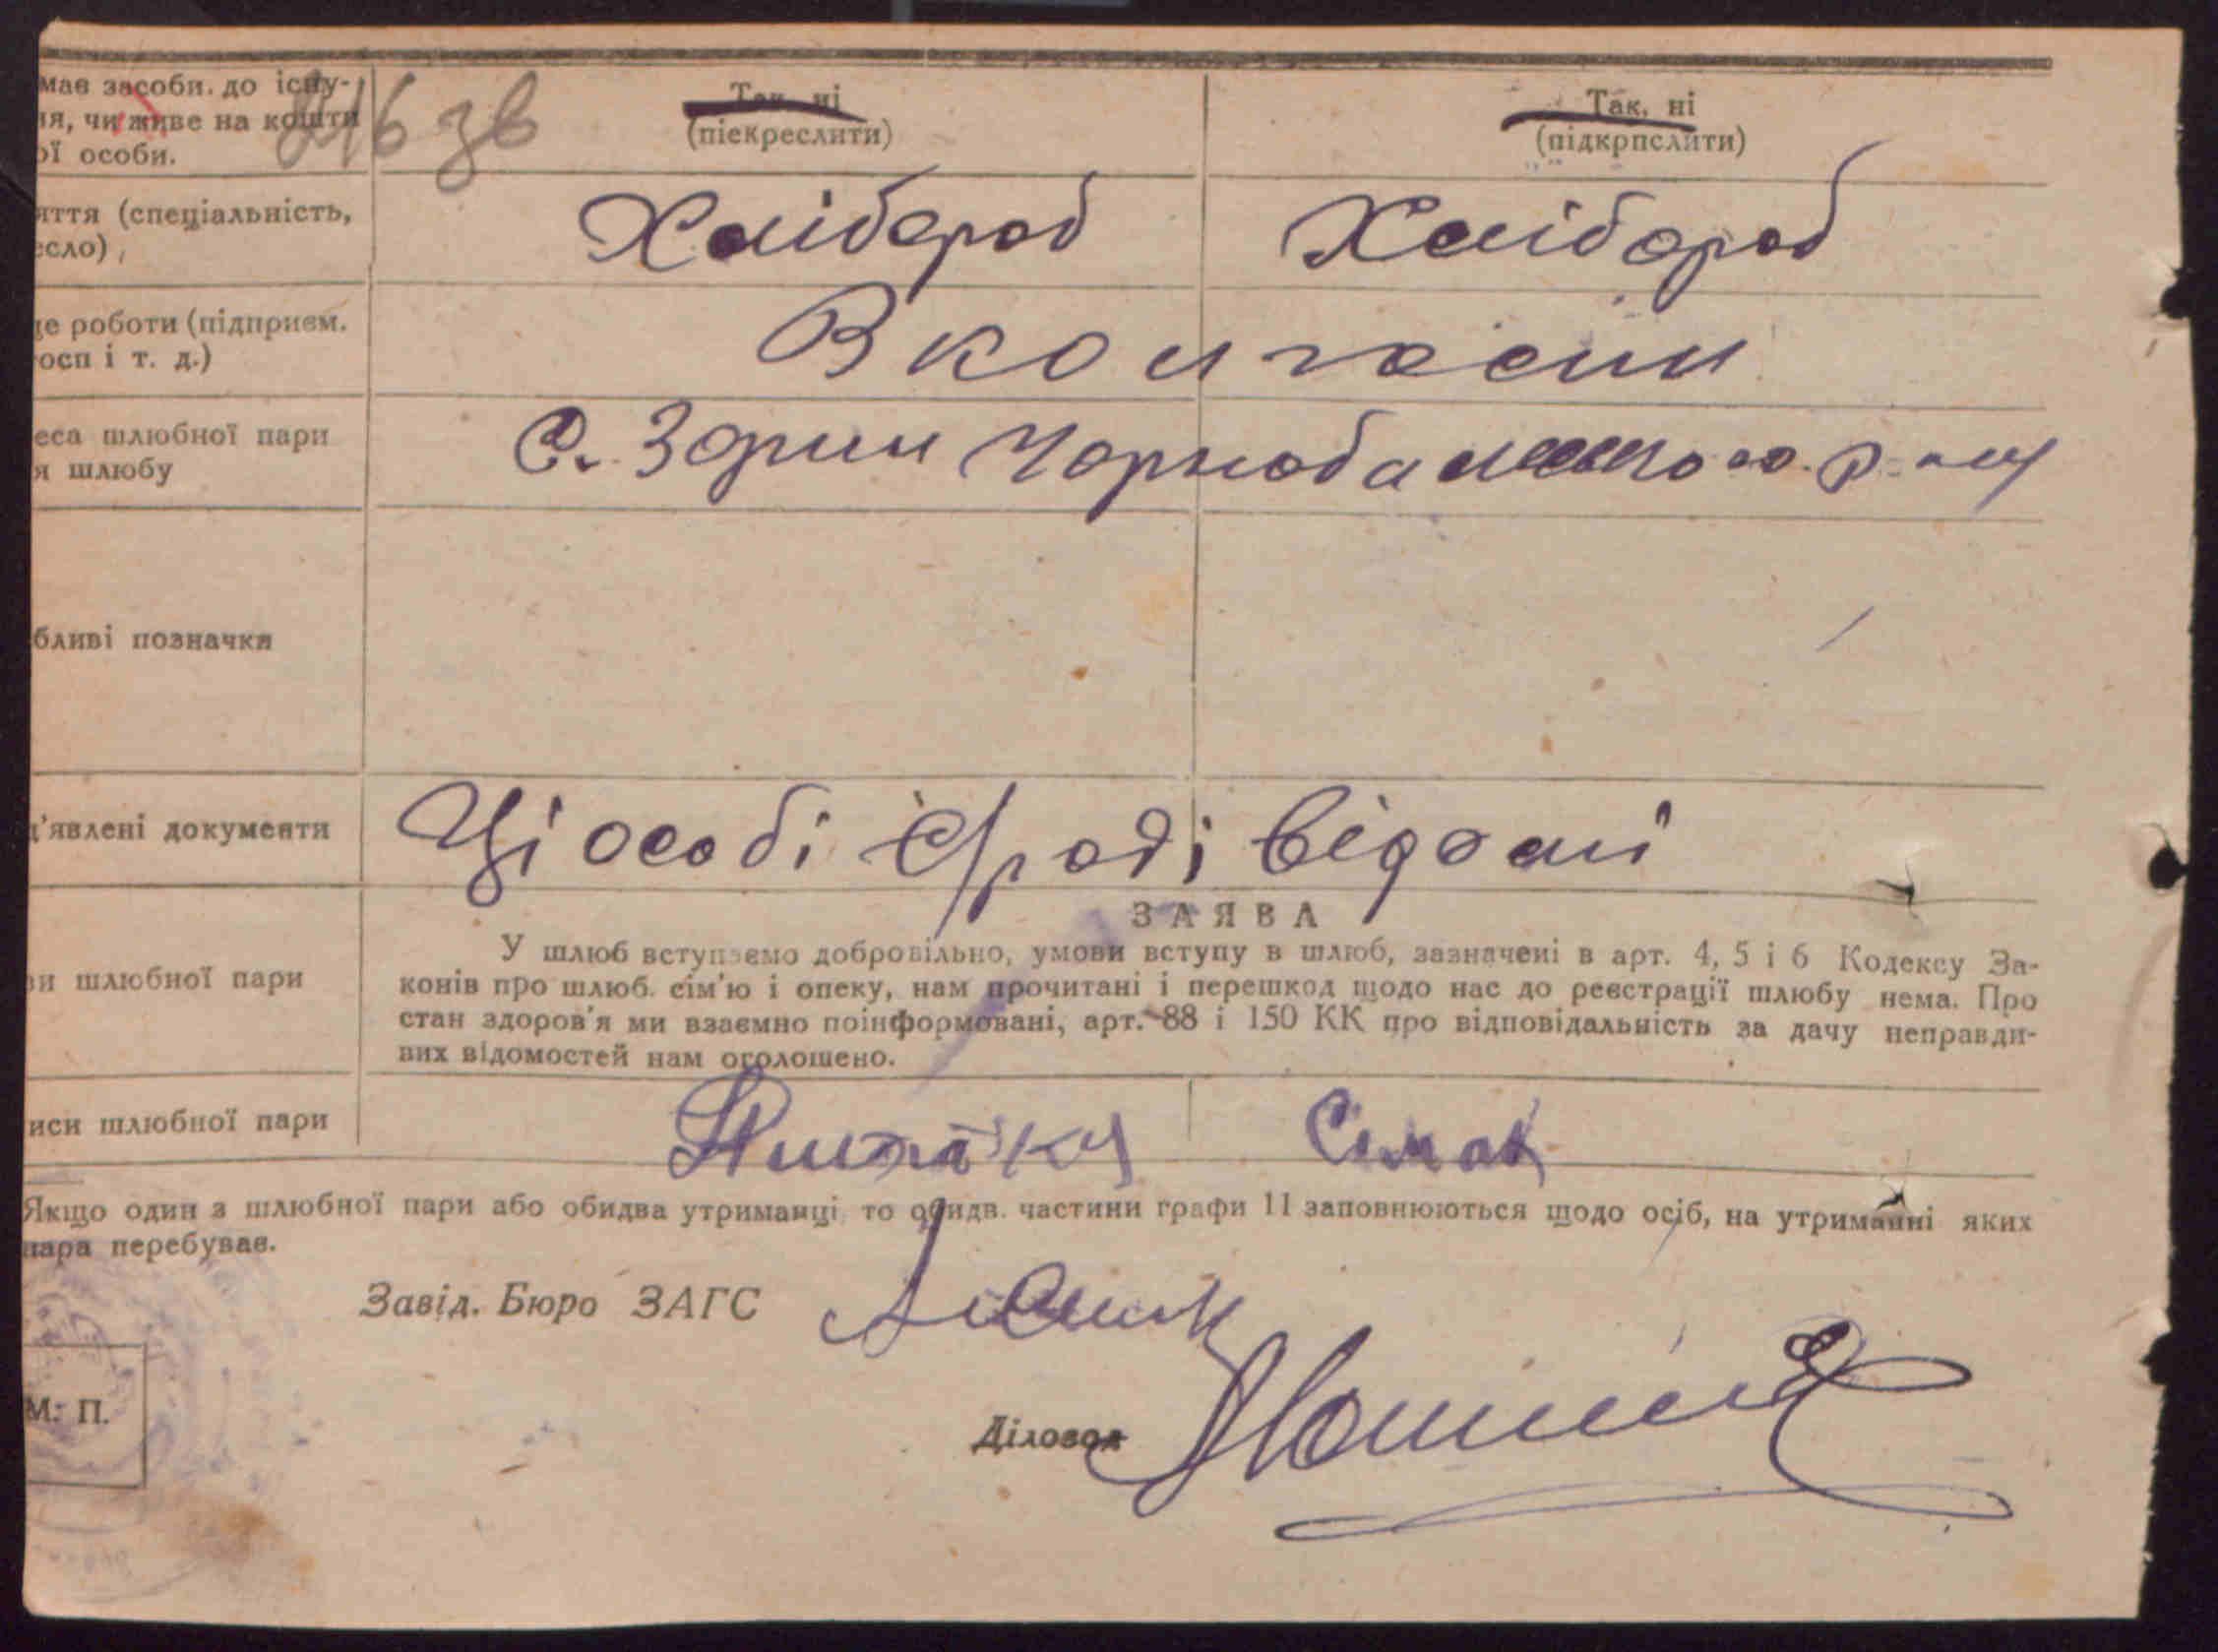 має засоби. до існу-
ня, чи живе на кошти
ої особи.
216 зв
Так, ні
(піекреслити)
Так, ні
(підкрпслити)
яття (спеціальність,
есло),
Хлібороб
Хлібороб
це роботи (підприєм.
осп і т. д.)
В колгоспи
еса шлюбної пари
я шлюбу
С. Зорин Чорнобаївського р-ну
бливі позначки
д'явлені документи
Ці особі с/раді відомі
ЗАЯВА
ви шлюбної пари
У шлюб вступаємо добровільно, умови вступу в шлюб, зазначені в арт. 4, 5 і 6 Кодексу За-
конів про шлюб. сім'ю і опеку, нам прочитані і перешкод щодо нас до реєстрації шлюбу нема. Про
стан здоров'я ми взаємно поінформовані, арт. 88 і 150 КК про відповідальність за дачу неправди-
вих відомостей нам оголошено.
иси шлюбної пари
Сімак
Якщо один з шлюбної пари або обидва утриманці, то обидв. частини графи 11 заповнюються щодо осіб, на утриманні яких
пара перебуває.
Завід. Бюро ЗАГС
М. П.
Діловод